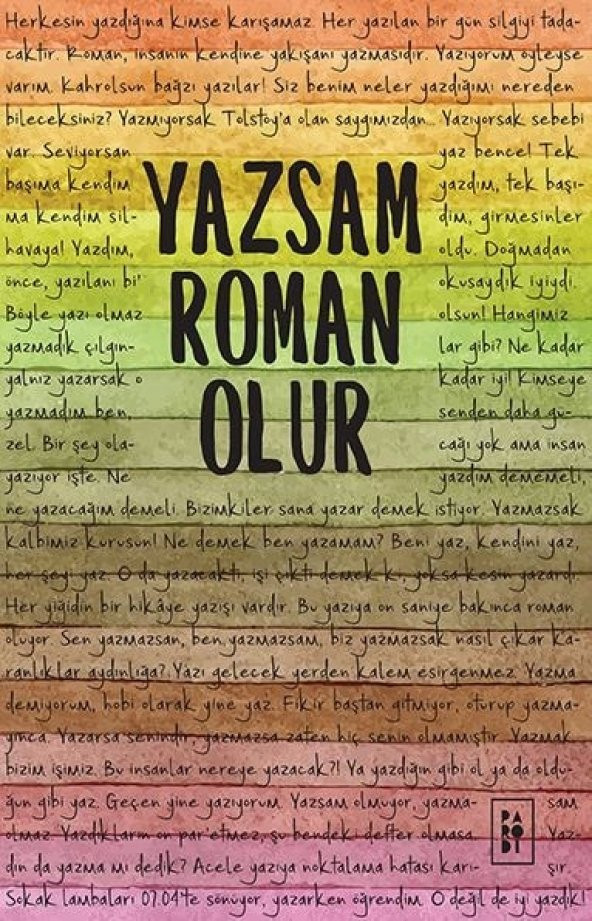 Herkesin yazdığına kimse karışamaz. Her yazılan bir gün silgiyi tada-
caktır. Roman, insanın kendine yakışanı yazmasıdır. Yazıyorum öyleyse
varım. Kahrolsun bağzı yazılar! Siz benim neler yazdığımı nereden
bileceksiniz? Yazmıyorsak Tolstoy'a olan saygımızdan... Yazıyorsak sebebi
var. Seviyorsan yaz bence! Tek
başıma kendim yazdım, tek başı-
ma kendim sil- dim, girmesinler
havaya! Yazdım, oldu. Doğmadan
önce, yazılanı bi' okusaydık iyiydi.
Böyle yazı olmaz olsun! Hangimiz
yazmadık çılgın- lar gibi? Ne kadar
yalnız yazarsak o kadar iyi! Kimseye
yazmadım ben, senden daha gü-
zel. Bir şey ola- cağı yok ama insan
yazıyor işte. Ne yazdım dememeli,
ne yazacağım demeli. Bizimkiler sana yazar demek istiyor. Yazmazsak
kalbimiz kurusun! Ne demek ben yazamam? Beni yaz, kendini yaz,
her şeyi yaz. O da yazacaktı, işi çıktı demek ki, yoksa kesin yazardı.
Her yiğidin bir hikâye yazışı vardır. Bu yazıya on saniye bakınca roman
oluyor. Sen yazmazsan, ben yazmazsam, biz yazmazsak nasıl çıkar ka-
ranlıklar aydınlığa? Yazı gelecek yerden kalem esirgenmez. Yazma
demiyorum, hobi olarak yine yaz. Fikir baştan gitmiyor, oturup yazma-
yınca. Yazarsa senindir, yazmazsa zaten hiç senin olmamıştır. Yazmak
bizim işimiz. Bu insanlar nereye yazacak?! Ya yazdığın gibi ol ya da oldu-
ğun gibi yaz. Geçen yine yazıyorum. Yazsam olmuyor, yazma- sam
olmaz. Yazdıkların on par'etmez, şu bendeki defter olmasa. Yaz-
dın da yazma mı dedik? Acele yazıya noktalama hatası karı- şır.
Sokak lambaları 07.04'te sönüyor, yazarken öğrendim. O değil de iyi yazdık!
YAZSAM
ROMAN
OLUR
PA
RO
Dİ